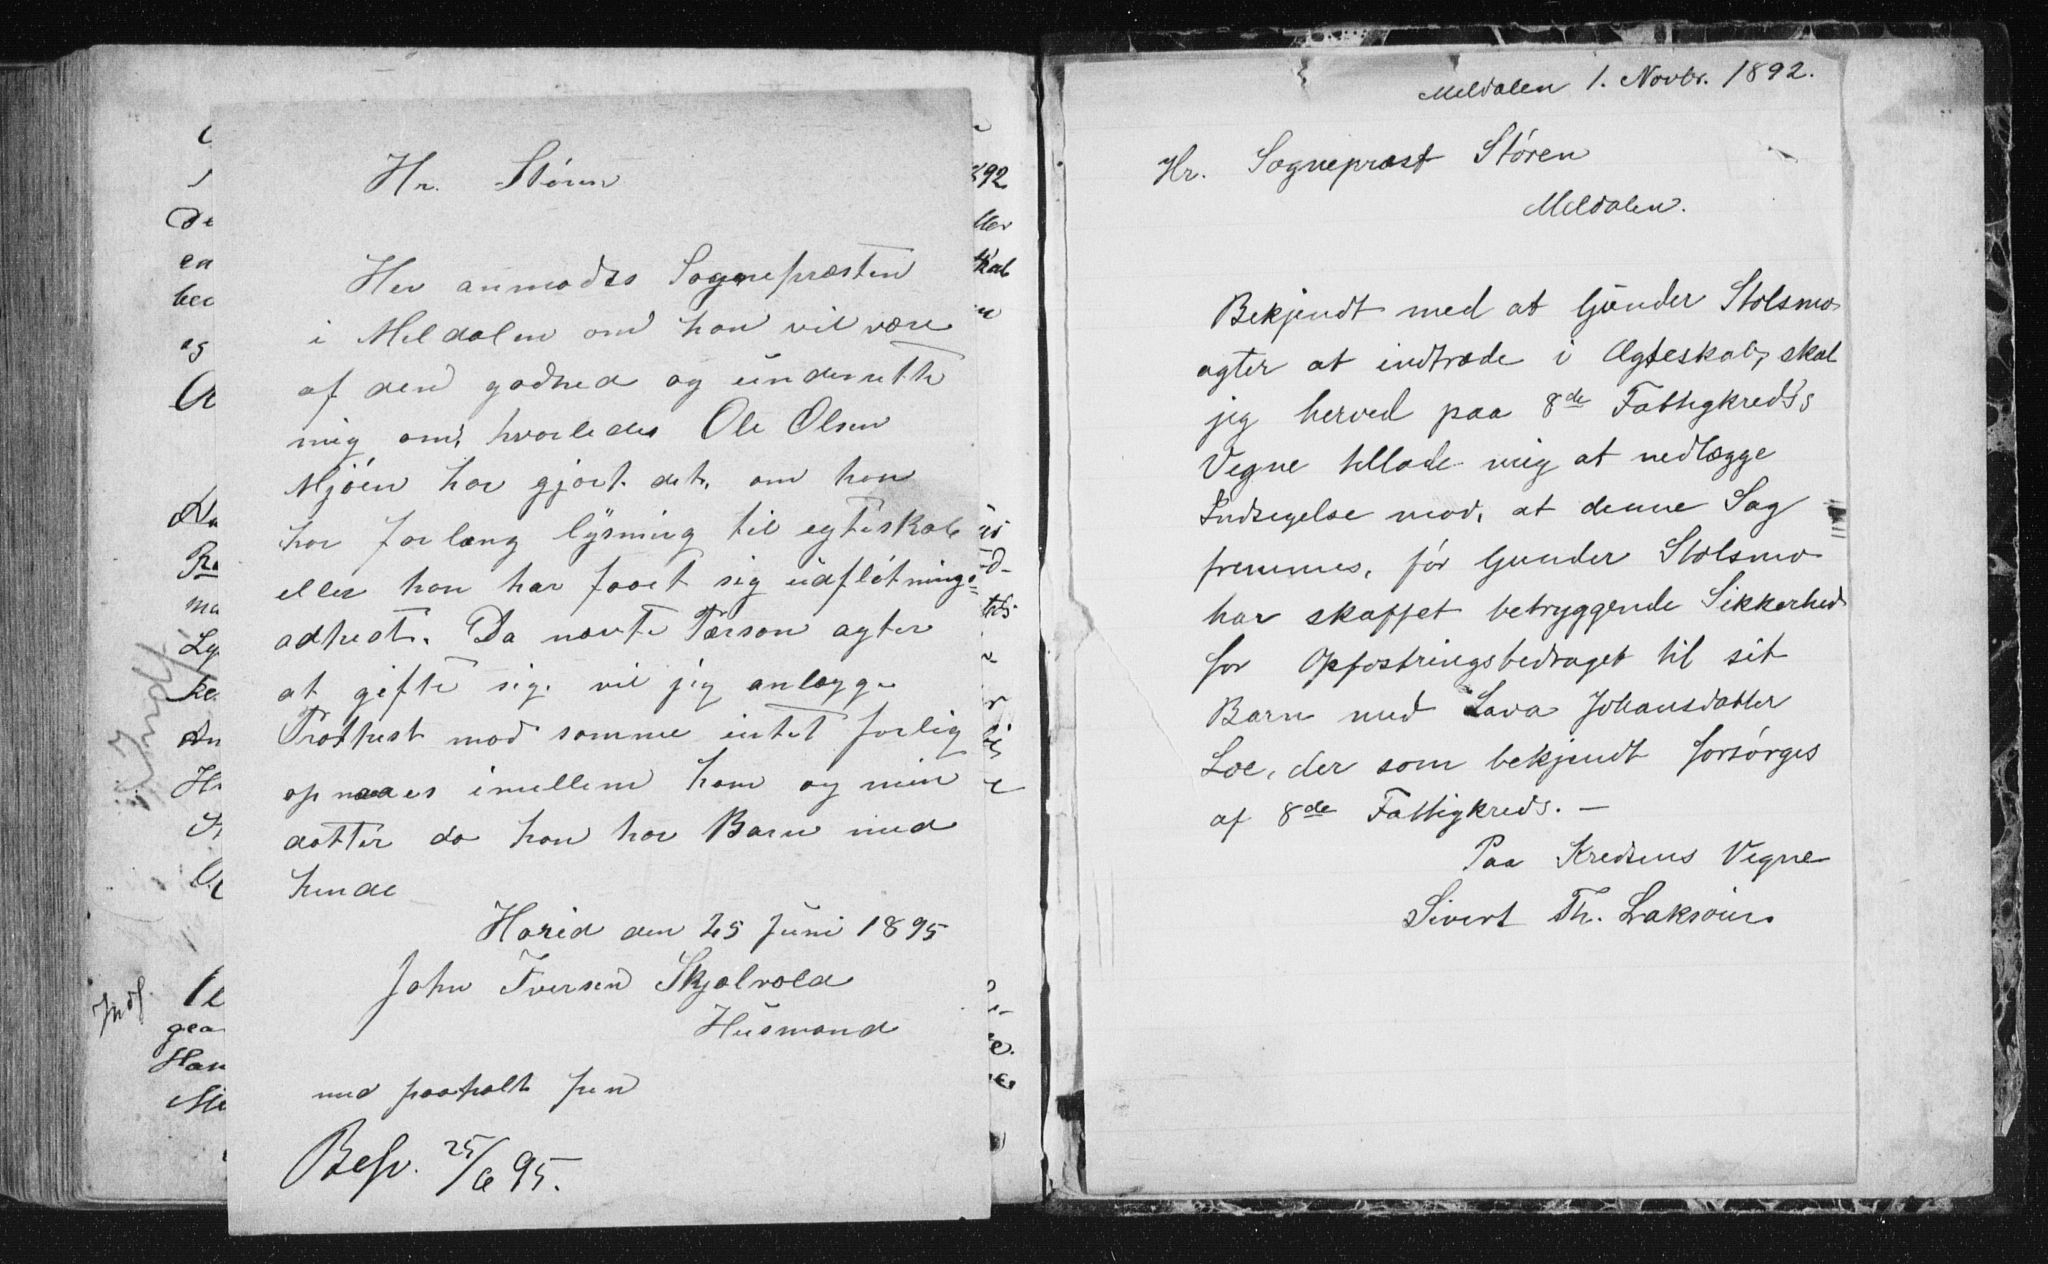 Hr. Støren
Her anmodes Sognepræsten
i Meldalen om han vil være
af den godhed og underrette
mig om, hvorledes Ole Olsen
Mjøen har gjort det, om han
har forlang lysning til egteskab
eller han har faaet sig udflötnings-
adhest. Da nævte Pærson agter
at gifte sig, vil jeg anlægge
Prothest mod samme intet forlig
opnaaes imellem ham og min
datter da han har Barn med
hende
Horid den 25 Juni 1895
John Iversen Skjølvold
Husmand
med paaholt pen
Besv. 25/6 95.
Indf.
Indf.
Meldalen 1. Novbr. 1892.
Hr. Sognepræst Støren
Meldalen.
Bekjendt med at Gunder Stolsmo
agter at indtræde i Ægteskab, skal
jeg herved paa 8de Fattigkreds's
Vegne tillade mig at nedlægge
Indsigelse mod, at denne Sag
fremmes, før Gunder Stolsmo
har skaffet betryggende Sikkerhed
for Opfostringsbedraget til sit
Barn med Lava Johansdatter
Loe, der som bekjendt forsørges
af 8de Fattigkreds. —
Paa Kredsens Vegne
Sivert Th. Laksøien